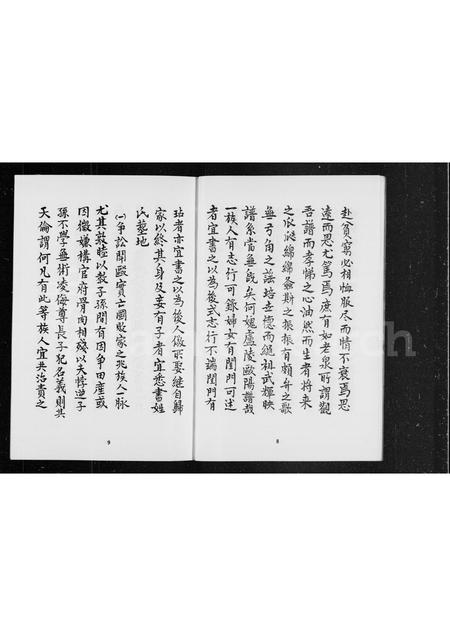 赴貧窮必相恤服尽而情不衰焉思
遠而思尤篤焉庶有如老泉所謂觀
吾譜而孝悌之心油然而生者將来
之瓜瓞綿綿螽斯之振振有頼舟之歌
無弓角之謡培立德而繩祖武輝映
譜系當無既矣何媿盧陵歐陽譜哉
一族人有志行可錄婦女有閨門可述
者宜書之以為後式志行不端閨門有
8
玷者亦宜書之以為後人儆所娶継自歸
家以終其身及妾有子者宜悉書姓
氏墓地
㈠争訟鬪毆實亡國敗家之兆族人一脉
尤其敦睦以教子孫間有因争田産或
因微嫌構官府骨肉相殘以夫悖逆子
孫不學無術凌侮尊長子犯名義則其
天倫謂何凡有此等族人宜共治責之
9